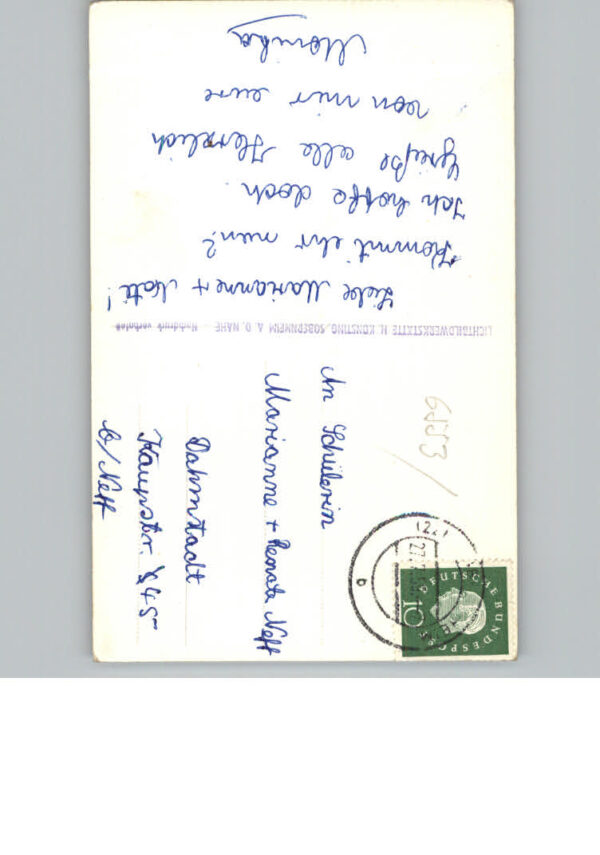 Liebe Marianne + Nati!
Kommt ihr nun?
Ich hoffe doch.
Grüße alle Herzlich
von mir eure
Monika
LICHTBILDWERKSTÄTTE H. KONSTING, SOBERNHEIM A. D. NAHE - Nachdruck verboten
An Schülerin
Marianne + Renate Neff
Dahmstadt
b/Neff
6553
(22
27.
DEUTSCHE BUNDESPOST
10
b